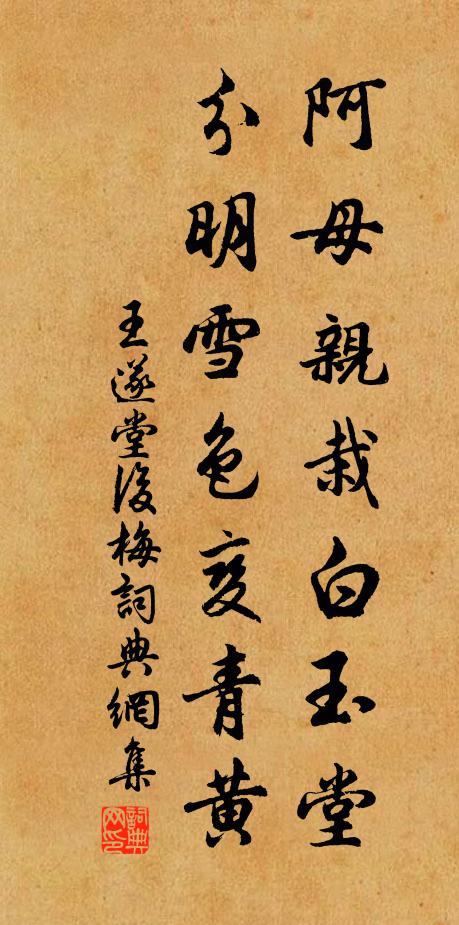 阿母親栽白玉堂
分明雪色变青黄
王遂堂後梅詞典網集
詞典网印